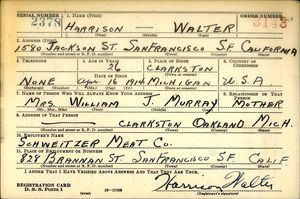 SERIAL NUMBER 2378
1. NAME (Print)
ORDER NUMBER 3143
HARRISON — WALTER
2. ADDRESS (Print)
1580 JACKSON ST. SAN FRANCISCO S.F. CALIFORNIA
3. TELEPHONE
4. AGE IN YEARS
26
5. PLACE OF BIRTH
CLARKSTON
6. COUNTRY OF CITIZENSHIP
DATE OF BIRTH
NONE Apr 16 1914 MICHIGAN U.S.A
7. NAME OF PERSON WHO WILL ALWAYS KNOW YOUR ADDRESS
8. RELATIONSHIP OF THAT PERSON
MRS. WILLIAM J. MURRAY MOTHER
9. ADDRESS OF THAT PERSON
CLARKSTON OAKLAND MICH.
10. EMPLOYER'S NAME
SCHWEITZER MEAT CO.
11. PLACE OF EMPLOYMENT OR BUSINESS
828 BRANNAN ST. SAN FRANCISCO S.F. CALIF.
I AFFIRM THAT I HAVE VERIFIED ABOVE ANSWERS AND THAT THEY ARE TRUE.
REGISTRATION CARD
D. S. S. FORM 1
Harrison Walter